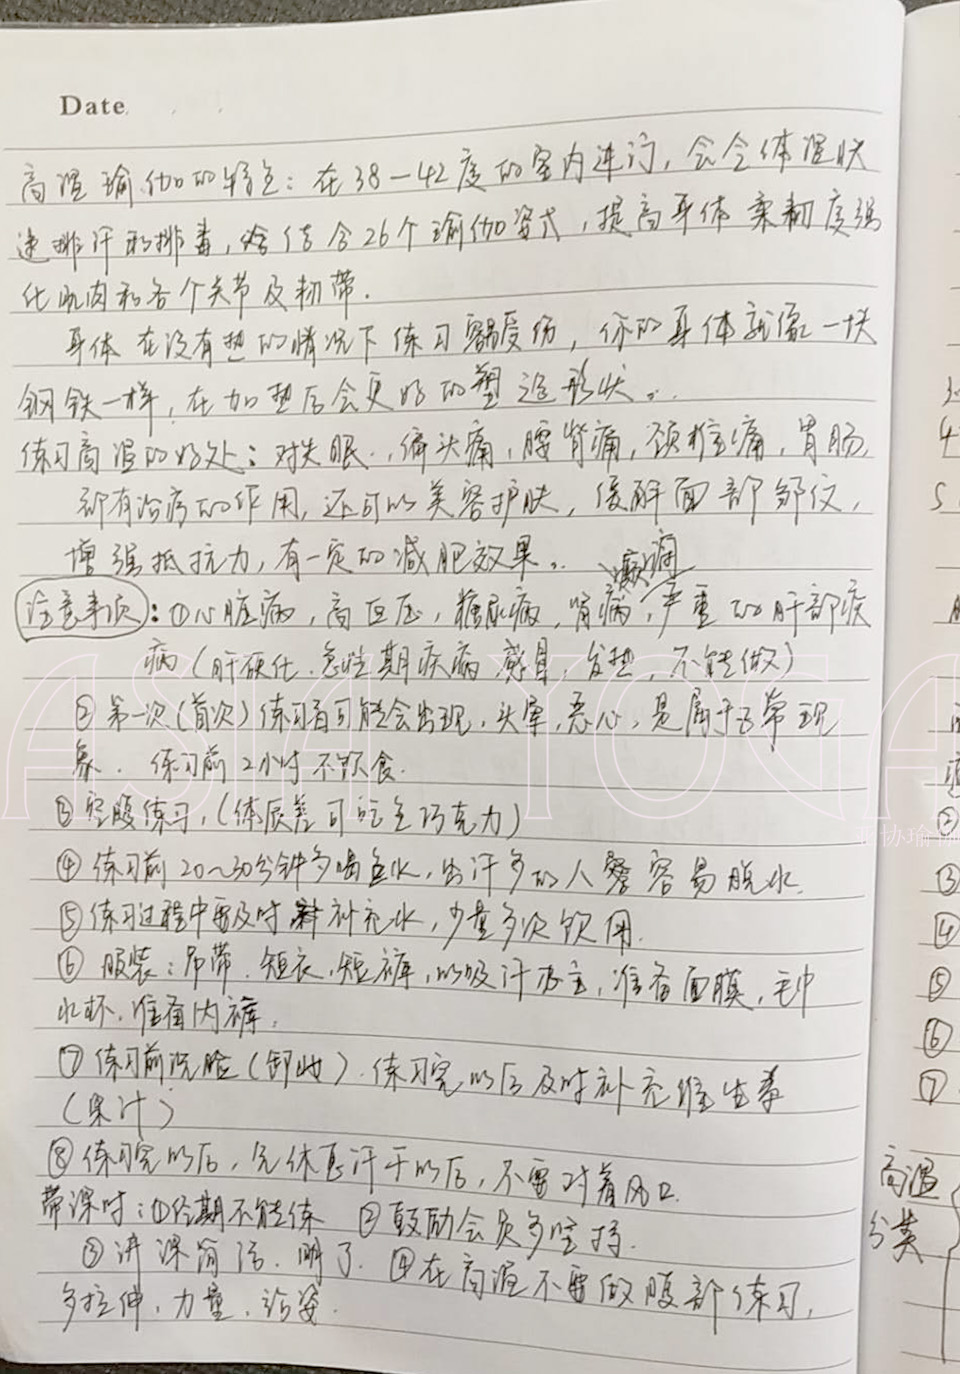 Date
高温瑜伽的特色：在38－42度的室内进行，会令体温快
速排汗和排毒，结合26个瑜伽姿式，提高身体柔韧度强
化肌肉和各个关节及韧带.
身体在没有热的情况下练习容易受伤，你的身体就像一块
钢铁一样，在加热后会更好的塑造形状。
练习高温的好处：对失眠，偏头痛，腰背痛，颈椎痛，胃肠，
都有治疗的作用，还可以美容护肤，缓解面部邹纹，
增强抵抗力，有一定的减肥效果。
癫痫
注意事项：①心脏病，高血压，糖尿病，肾病，严重的肝部疾
病（肝硬化.急性期疾病 感冒，发热，不能做）
②第一次（首次）练习者可能会出现，头晕，恶心，是属于正常现
象．练习前2小时不饮食.
③空腹练习，（体质差可吃些巧克力）
④练习前20～30分钟多喝盐水，出汗多的人容易脱水.
⑤练习过程中要及时补充水，少量多次饮用.
⑥服装：吊带．短衣，短裤，以吸汗为主，准备面膜，毛巾
水杯．准备内裤，
⑦练习前洗脸（卸妆）．练习完以后及时补充维生素
（果汁）
⑧练习完以后，先休息汗干以后，不要对着风口.
带课时：①经期不能练 ②鼓励会员多坚持.
③讲课简洁．明了．④在高温不要做腹部练习，
多拉伸，力量，站姿.
ASIA YOGA
亚协瑜伽
高温
分类
4
5
②
③
④
⑤
⑥
⑦